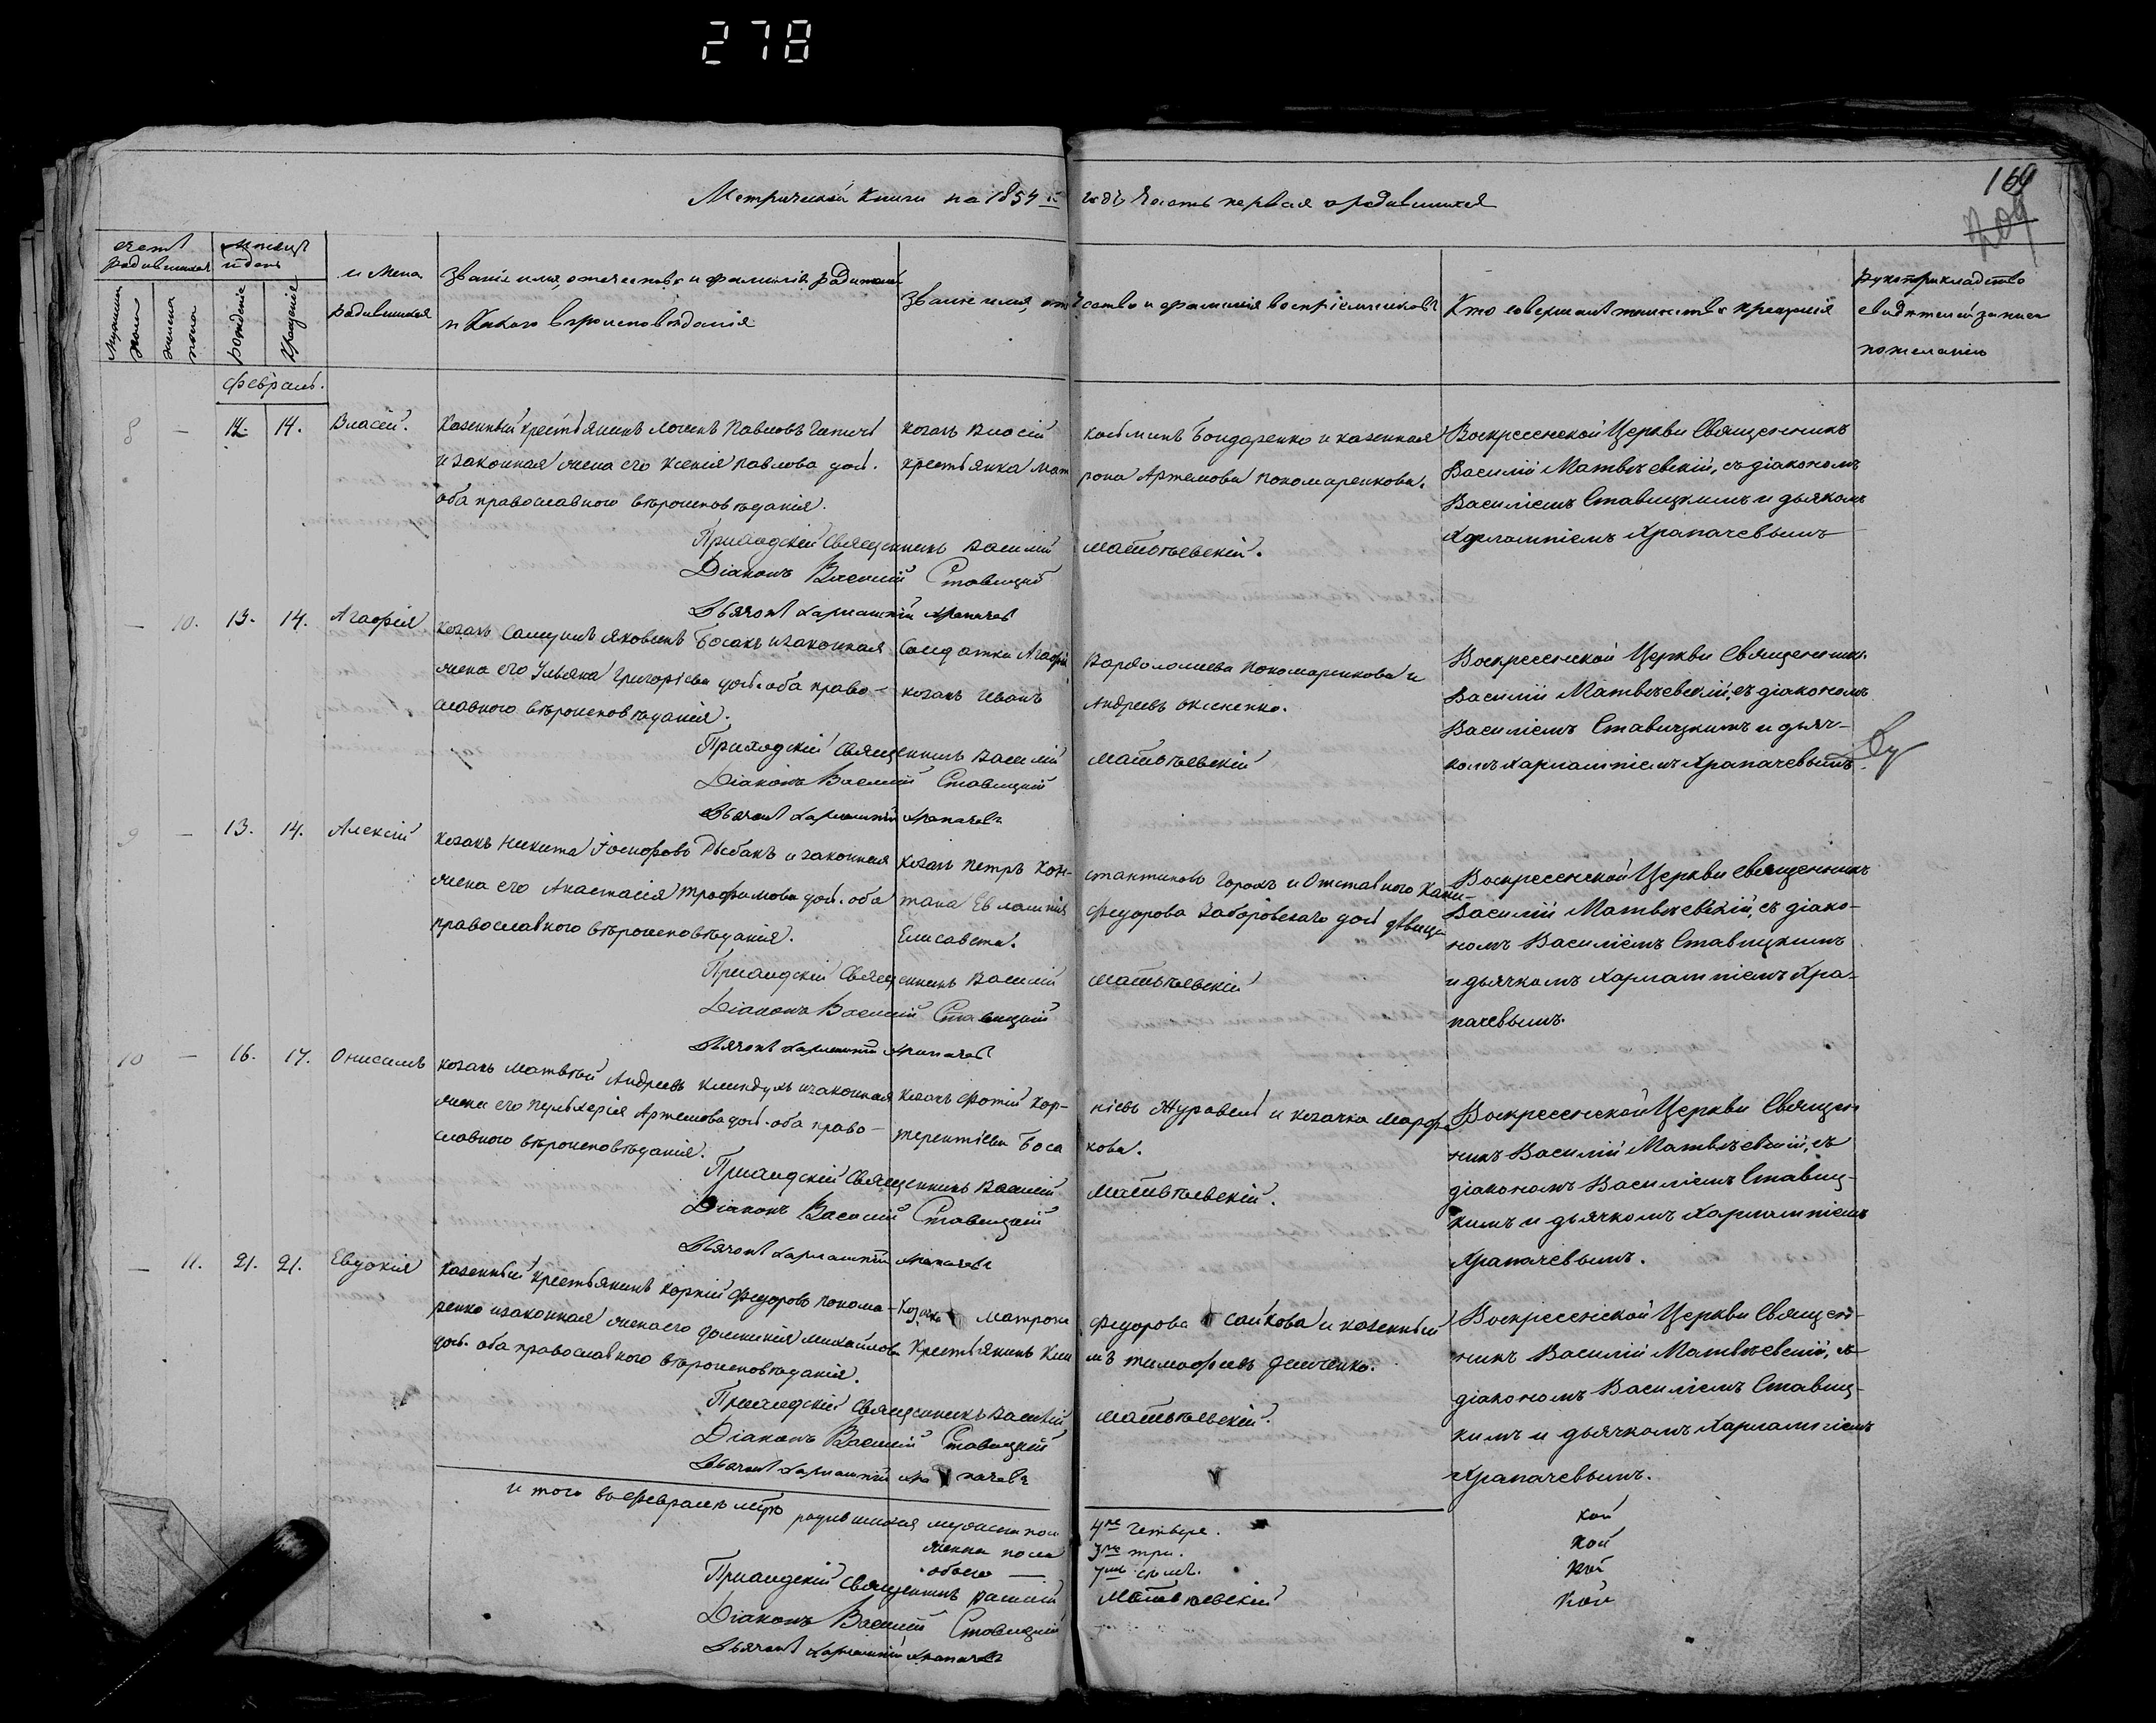 278
Метрической Книги на 1854 й годъ Часть первая о родившихся
164
209
счетъ родившихся
Мужеска пола
женска пола
Месяцъ и день
рожденіе
Крещеніе
имена родившихся
Званіе имя, отечество и фамилія Родителей
и Какого вероисповеданія
Званіе имя, отчество и фамилія воспріемниковъ
Кто совершалъ таинство крещенія
Рукоприкладство
свидетелей записи
по желанію
Февраль.
8 — 12. 14. Власій.
Казенный крестьянинъ Павловъ
и законная жена его Ксенія Павлова доч.
оба православного вѣроисповѣданія.
козакъ Власій Бондаренко и казенная
крестьянка Матрона Артемова Пономаренкова.
Воскресенской Церкви Священникъ
Василій Матвѣевскій, съ діакономъ
Василіемъ Ставицкимъ и дьякомъ
Харлампіемъ Храпачевымъ
Приходскій Священникъ Василій Матвѣевскій.
Діаконъ Василій Ставицкій
Дьячокъ Харлампій Храпачевъ
— 10. 13. 14. Агафія
козакъ Самуилъ Яковлевъ Босакъ и законная
жена его Ульяна Григоріева доч. оба право-
славного вѣроисповѣданія.
Солдатка Агафія Варфоломеева Пономаренкова и
козакъ Иванъ Андреевъ
Воскресенской Церкви Священникъ
Василій Матвѣевскій, съ діакономъ
Василіемъ Ставицкимъ и дьяч-
комъ Харлампіемъ Храпачевымъ.
Приходскій Священникъ Василій Матвѣевскій
Діаконъ Василій Ставицкій
Дьячокъ Харлампій Храпачевъ
9 — 13. 14. Алексій
Козакъ Никита Іосифовъ Рыбакъ и законная
жена его Анастасія Трофимова доч. оба
православного вѣроисповѣданія.
козакъ Петръ Константиновъ и Отставного Капи-
тана Евлампія Федорова Заборовскаго доч. дѣвица
Елисавета.
Воскресенской Церкви Священникъ
Василій Матвѣевскій, съ діако-
номъ Василіемъ Ставицкимъ
и дьячкомъ Харлампіемъ Хра-
пачевымъ.
Приходскій Священникъ Василій Матвѣевскій
Діаконъ Василій Ставицкій
Дьячокъ Харлампій Храпачевъ
10 — 16. 17. Онисимъ
козакъ Матвѣй Андреевъ и законная
жена его Пульхерія Артемова доч. оба право-
славного вѣроисповѣданія.
козакъ Фотій Корніевъ Журавель и козачка Марфа
терентіева Босакова.
Воскресенской Церкви Священ
никъ Василій Матвѣевскій, съ
діакономъ Василіемъ Ставиц-
кимъ и дьячкомъ Харлампіемъ
Храпачевымъ.
Приходскій Священникъ Василій Матвѣевскій.
Діаконъ Василій Ставицкій
Дьячокъ Харлампій Храпачевъ
— 11. 21. 21. Евдокія
Казенный крестьянинъ Корній Федоровъ Понома-
ренко и законная жена его Домникія Михайлова
доч. оба православного вѣроисповѣданія.
Козачка Матрона Федорова Сайкова и казенный
Крестьянинъ Климъ Тимофеевъ Демченко.
Воскресенской Церкви Священ-
никъ Василій Матвѣевскій, съ
діакономъ Василіемъ Ставиц-
кимъ и дьячкомъ Харлампіемъ
Храпачевымъ.
Приходскій Священникъ Василій Матвѣевскій.
Діаконъ Василій Ставицкій
Дьячокъ Харлампій Храпачевъ
и того въ Феврале мцѣ родившихся мужеска пола 4ре четыре.
женска пола 3ри три.
обоего — 7мь семь.
Приходскій Священникъ Василій Матвѣевскій
Діаконъ Василій Ставицкій
Дьячокъ Харлампій Храпачевъ
кой
кой
кой
кой